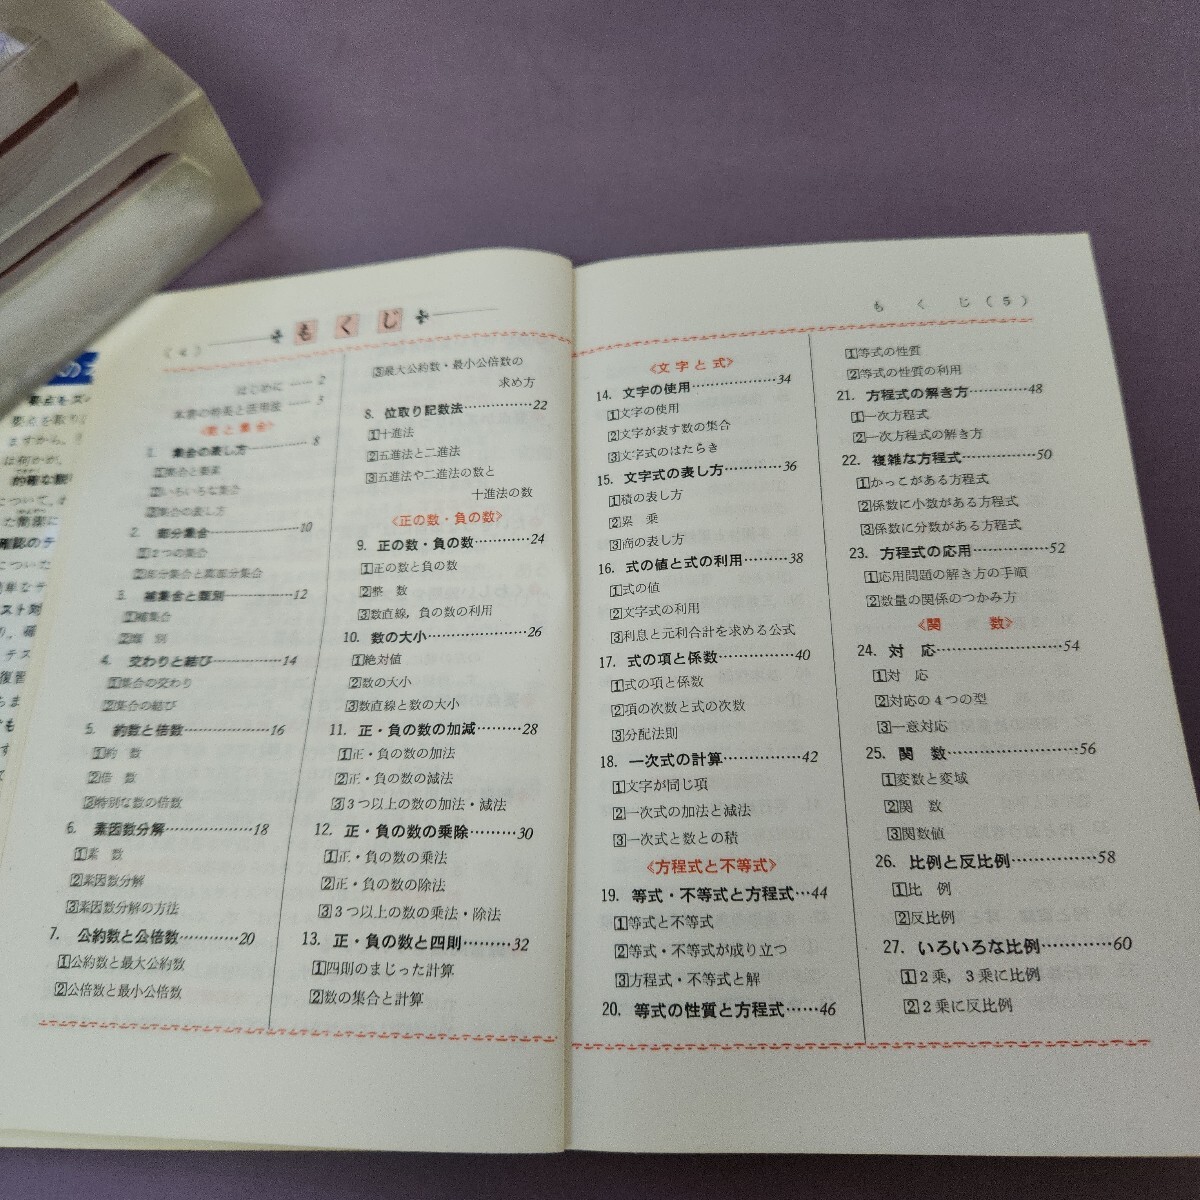 (4)
もくじ
はじめに……2
本書の特長と活用法……3
《数と集合》
1. 集合の表し方……8
1集合と要素
2いろいろな集合
3集合の表し方
2. 部分集合……10
12つの集合
2部分集合と真部分集合
3. 補集合と類別……12
1補集合
2類 別
4. 交わりと結び……14
1集合の交わり
2集合の結び
5. 約数と倍数……16
1約 数
2倍 数
3特別な数の倍数
6. 素因数分解……18
1素 数
2素因数分解
3素因数分解の方法
7. 公約数と公倍数……20
1公約数と最大公約数
2公倍数と最小公倍数
3最大公約数・最小公倍数の
求め方
8. 位取り記数法……22
1十進法
2五進法と二進法
3五進法や二進法の数と
十進法の数
《正の数・負の数》
9. 正の数・負の数……24
1正の数と負の数
2整 数
3数直線，負の数の利用
10. 数の大小……26
1絶対値
2数の大小
3数直線と数の大小
11. 正・負の数の加減……28
1正・負の数の加法
2正・負の数の減法
33つ以上の数の加法・減法
12. 正・負の数の乗除……30
1正・負の数の乗法
2正・負の数の除法
33つ以上の数の乗法・除法
13. 正・負の数と四則……32
1四則のまじった計算
2数の集合と計算
もくじ(5)
《文字と式》
14. 文字の使用……34
1文字の使用
2文字が表す数の集合
3文字式のはたらき
15. 文字式の表し方……36
1積の表し方
2累 乗
3商の表し方
16. 式の値と式の利用……38
1式の値
2文字式の利用
3利息と元利合計を求める公式
17. 式の項と係数……40
1式の項と係数
2項の次数と式の次数
3分配法則
18. 一次式の計算……42
1文字が同じ項
2一次式の加法と減法
3一次式と数との積
《方程式と不等式》
19. 等式・不等式と方程式…44
1等式と不等式
2等式・不等式が成り立つ
3方程式・不等式と解
20. 等式の性質と方程式……46
1等式の性質
2等式の性質の利用
21. 方程式の解き方……48
1一次方程式
2一次方程式の解き方
22. 複雑な方程式……50
1かっこがある方程式
2係数に小数がある方程式
3係数に分数がある方程式
23. 方程式の応用……52
1応用問題の解き方の手順
2数量の関係のつかみ方
《関 数》
24. 対 応……54
1対 応
2対応の4つの型
3一意対応
25. 関 数……56
1変数と変域
2関 数
3関数値
26. 比例と反比例……58
1比 例
2反比例
27. いろいろな比例……60
12乗，3乗に比例
22乗に反比例